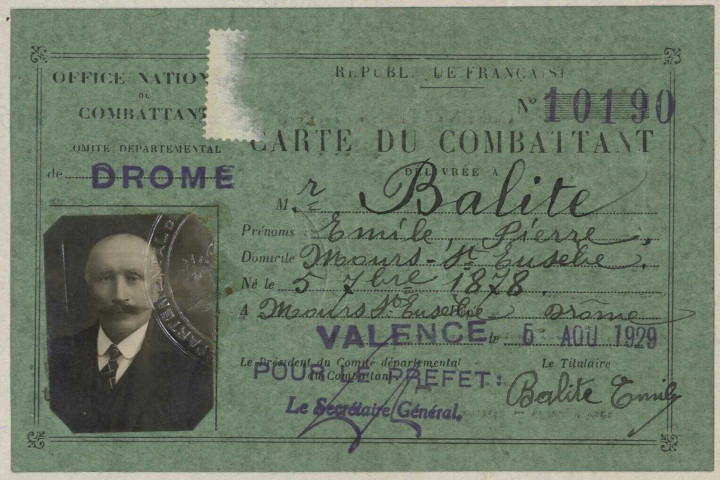 OFFICE NATION
DU
COMBATTANT
COMITÉ DÉPARTEMENTAL
de DROME
RÉPUBL UE FRANÇAISE
N° 10190
CARTE DU COMBATTANT
DÉLIVRÉE A
M r Balite
Prénoms Emile, Pierre,
Domicile Mours-St Eusebe.
Né le 5 7bre 1878.
A Mours St Eusebe Drôme
VALENCE le 5 AOU 1929
Le Président du Comité départemental
du Combattant
Le Titulaire
POUR LE PREFET:
Le Secrétaire Général,
Balite Emile